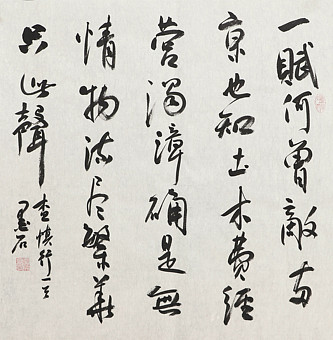 一賦何曾敵两
京也知土木費經
营濁漳確是無
情物流尽繁華
只此聲
查慎行一首
墨石